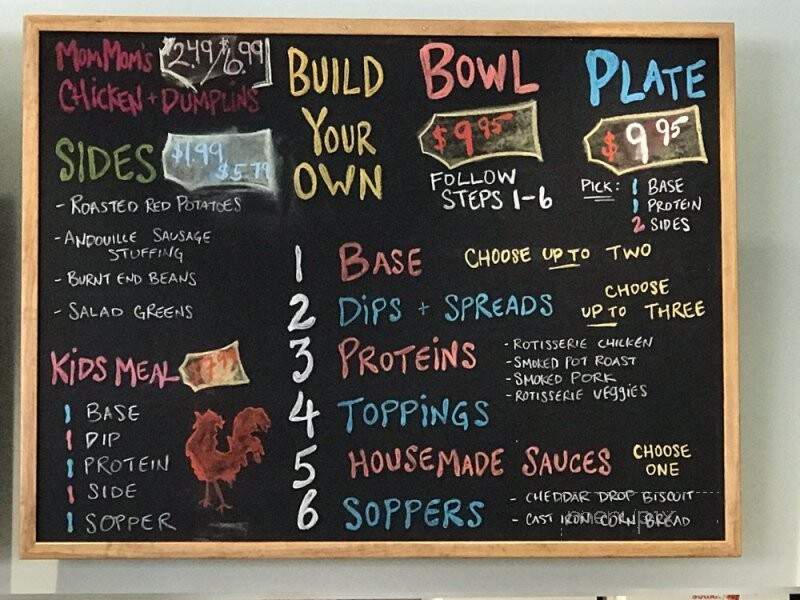 MOMMOM'S $2.49/6.99
CHICKEN + DUMPLINS
SIDES $1.99
$5.79
- ROASTED RED POTATOES
- ANDOUILLE SAUSAGE
STUFFING
- BURNT END BEANS
- SALAD GREENS
KIDS MEAL
1 BASE
1 DIP
1 PROTEIN
1 SIDE
1 SOPPER
BUILD
YOUR
OWN
BOWL
$9.95
FOLLOW
STEPS 1-6
PLATE
$9.95
PICK: 1 BASE
1 PROTEIN
2 SIDES
1 BASE CHOOSE UP TO TWO
2 DIPS + SPREADS CHOOSE
UP TO THREE
3 PROTEINS - ROTISSERIE CHICKEN
- SMOKED POT ROAST
- SMOKED PORK
- ROTISSERIE VEGGIES
4 TOPPINGS
5 HOUSEMADE SAUCES CHOOSE
ONE
6 SOPPERS - CHEDDAR DROP BISCUIT
- CAST IRON CORN BREAD